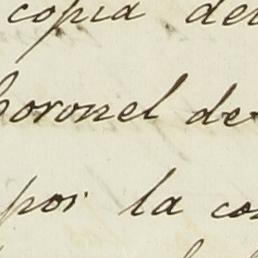 copia del
Coronel de
por la co